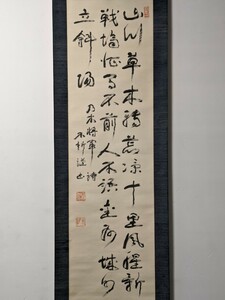 山川草木轉荒涼十里風腥新
戦場征馬不前人不語金州城外
立斜陽
乃木将軍詩